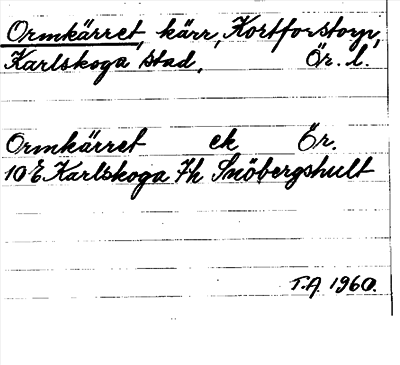 Ormkärret, kärr, Kortforstorp,
Karlskoga stad, Ör. l.
Ormkärret ek Ör.
10E Karlskoga 7h Snöbergshult
T.A. 1960.